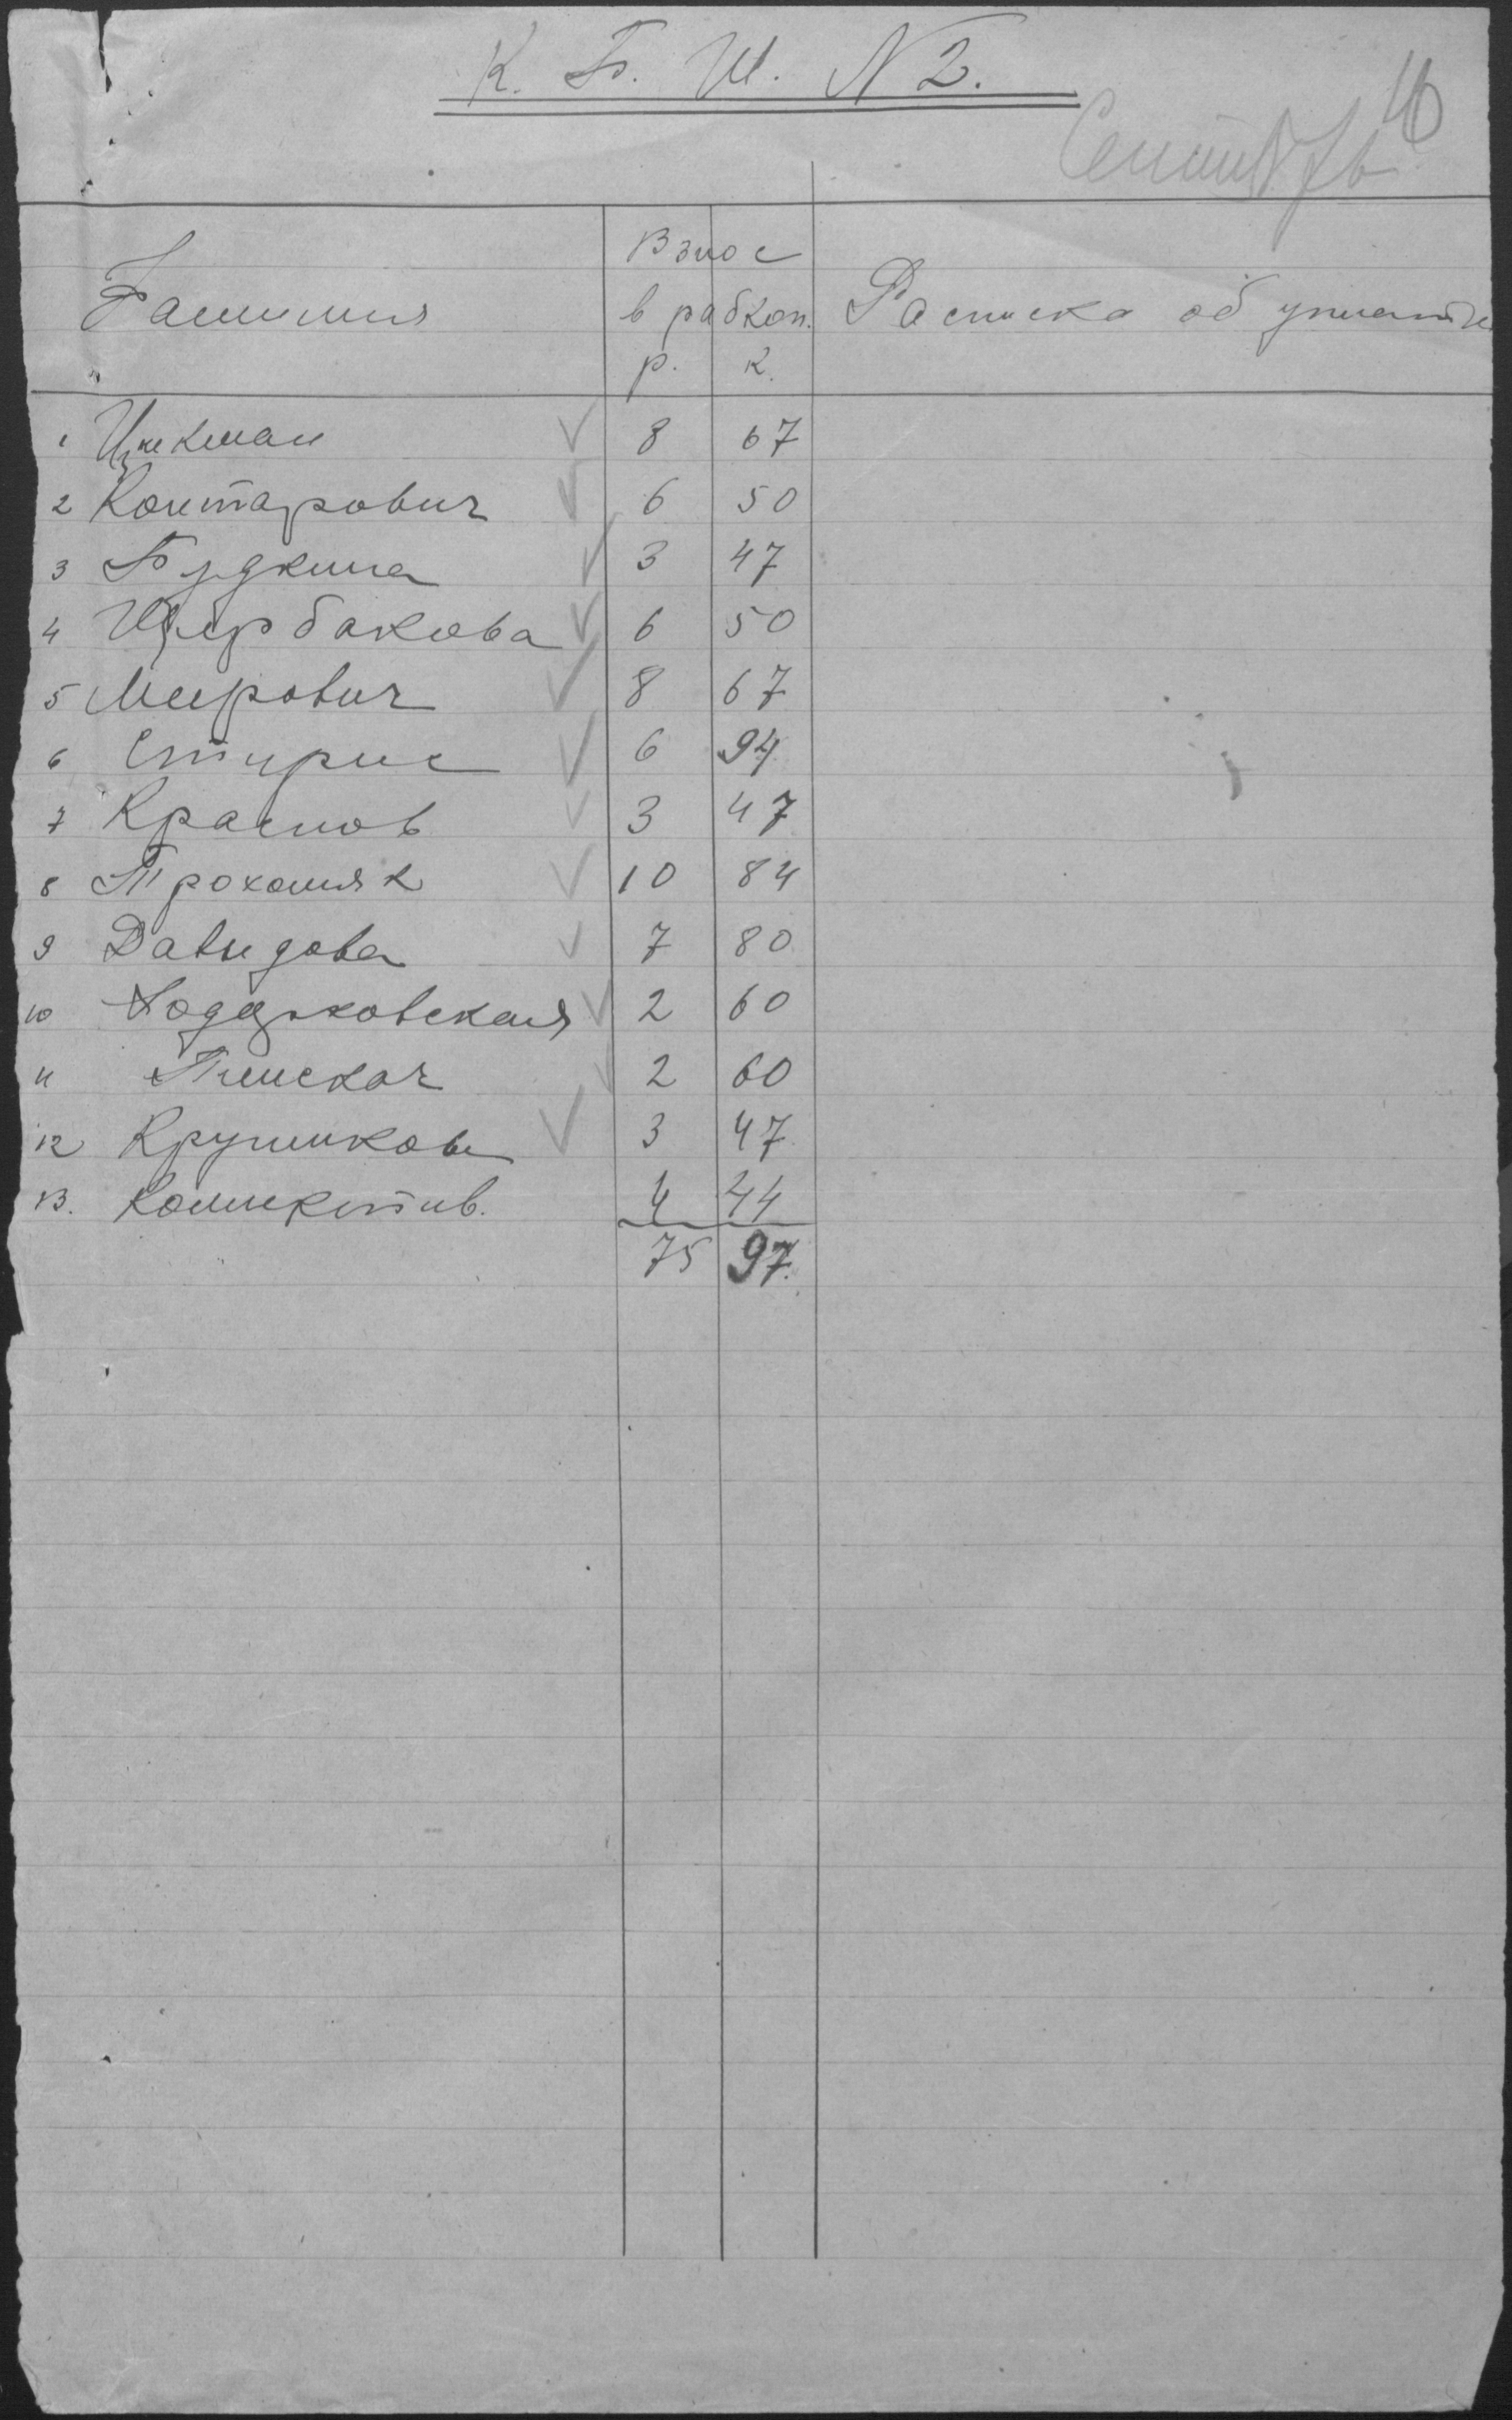 К. Б. Ш. N 2.
Сентябрь
Фамилия
Взнос
в рабкоп.
р. к.
Расписка об уплате
1 Цукман ✓ 8 67
2 Контарович ✓ 6 50
3 Будкина ✓ 3 47
4 Щербакова ✓ 6 50
5 Меерович ✓ 8 67
6 Стирис ✓ 6 94
7 Краснов ✓ 3 47
8 Трохомяк ✓ 10 84
9 Давыдова ✓ 7 80
10 Ходарковская ✓ 2 60
11 Пинскач ✓ 2 60
12 Крупников ✓ 3 47
13. Коллектив. 4 44
75 97.